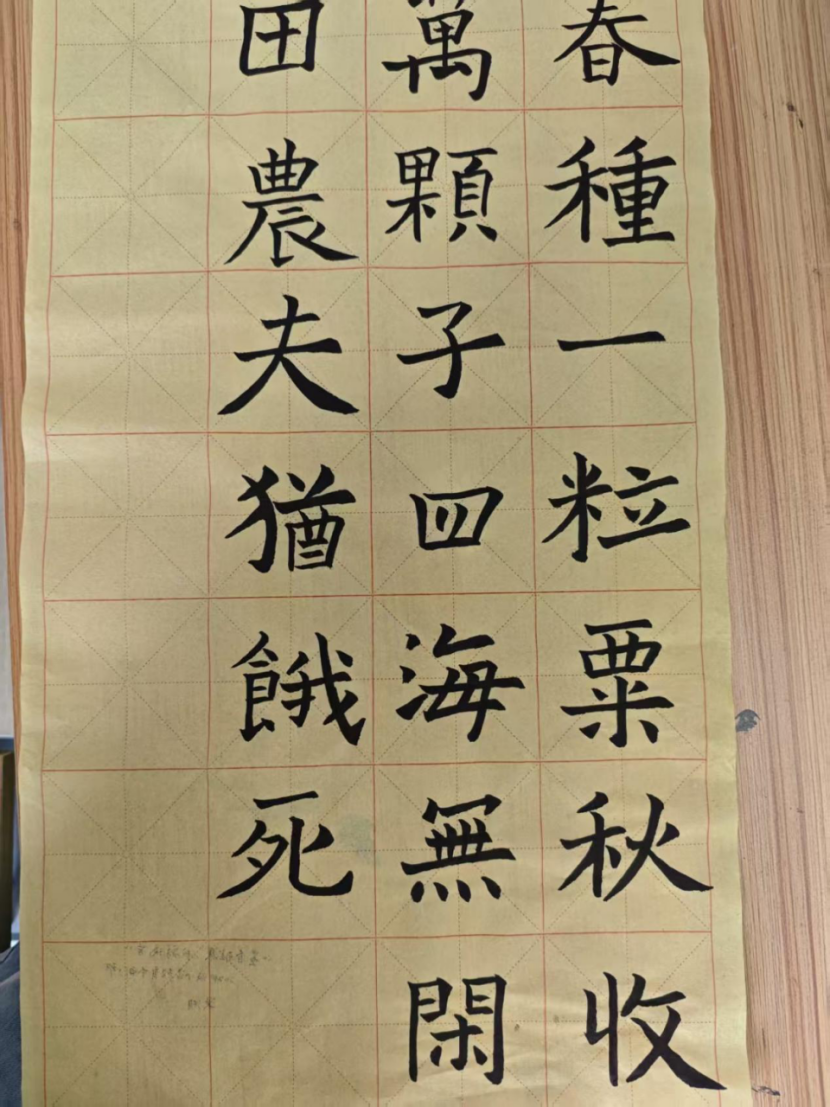 春種一粒粟秋收
萬顆子四海無閑
田農夫猶餓死